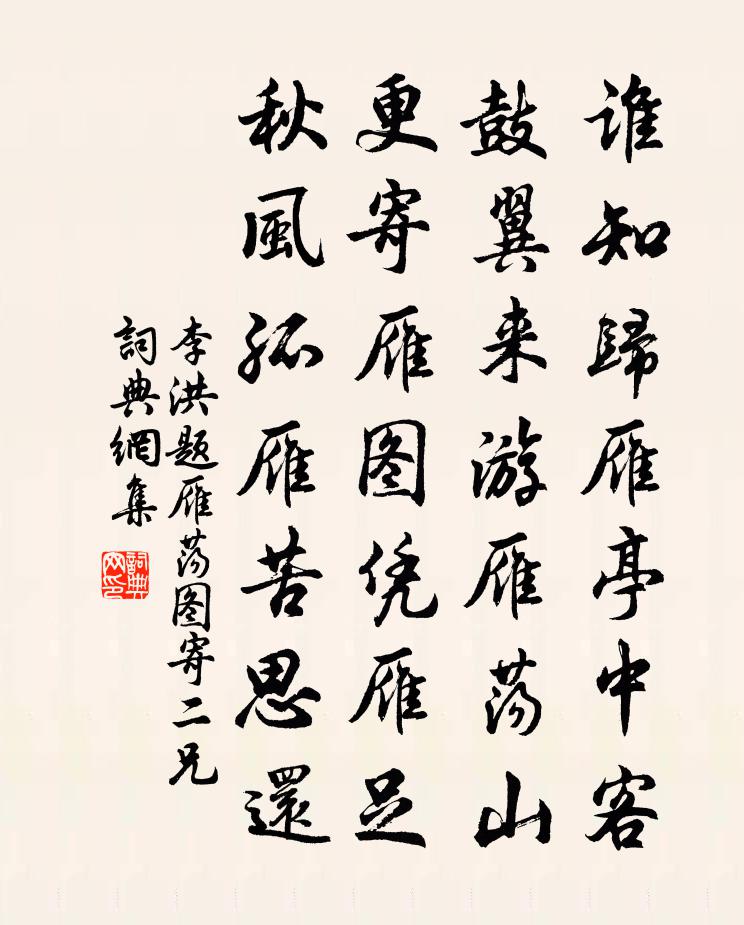 谁知歸雁亭中客
鼓翼来游雁荡山
更寄雁图凭雁足
秋風孤雁苦思還
李洪题雁荡图寄二兄
詞典網集
詞典网印